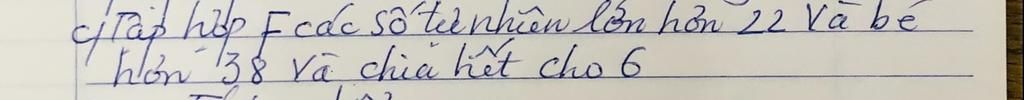 c) Tập hợp F các số tự nhiên lớn hơn 22 và bé
hơn 38 và chia hết cho 6